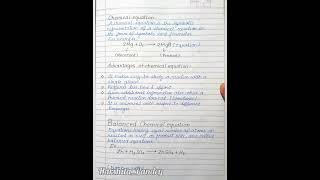 Chemical equation
A chemical equation is the symbolic
representation of a chemical reaction in
the form of symbols and formulae
For example :-
2Mg + O₂ → 2MgO (equation)
(Reactant) (Product)
Advantages of chemical equation
It makes easy to study a reaction with a
single glance
Reduces our time & effort
Gives additional information about a
chemical reaction
It is universal with respect to different
languages
Balanced Chemical equation
Equations having equal number of atoms at
reactant as well as product side, are called
balanced equations.
Zn + H₂SO₄ → ZnSO₄ + H₂
Harshita Pandey